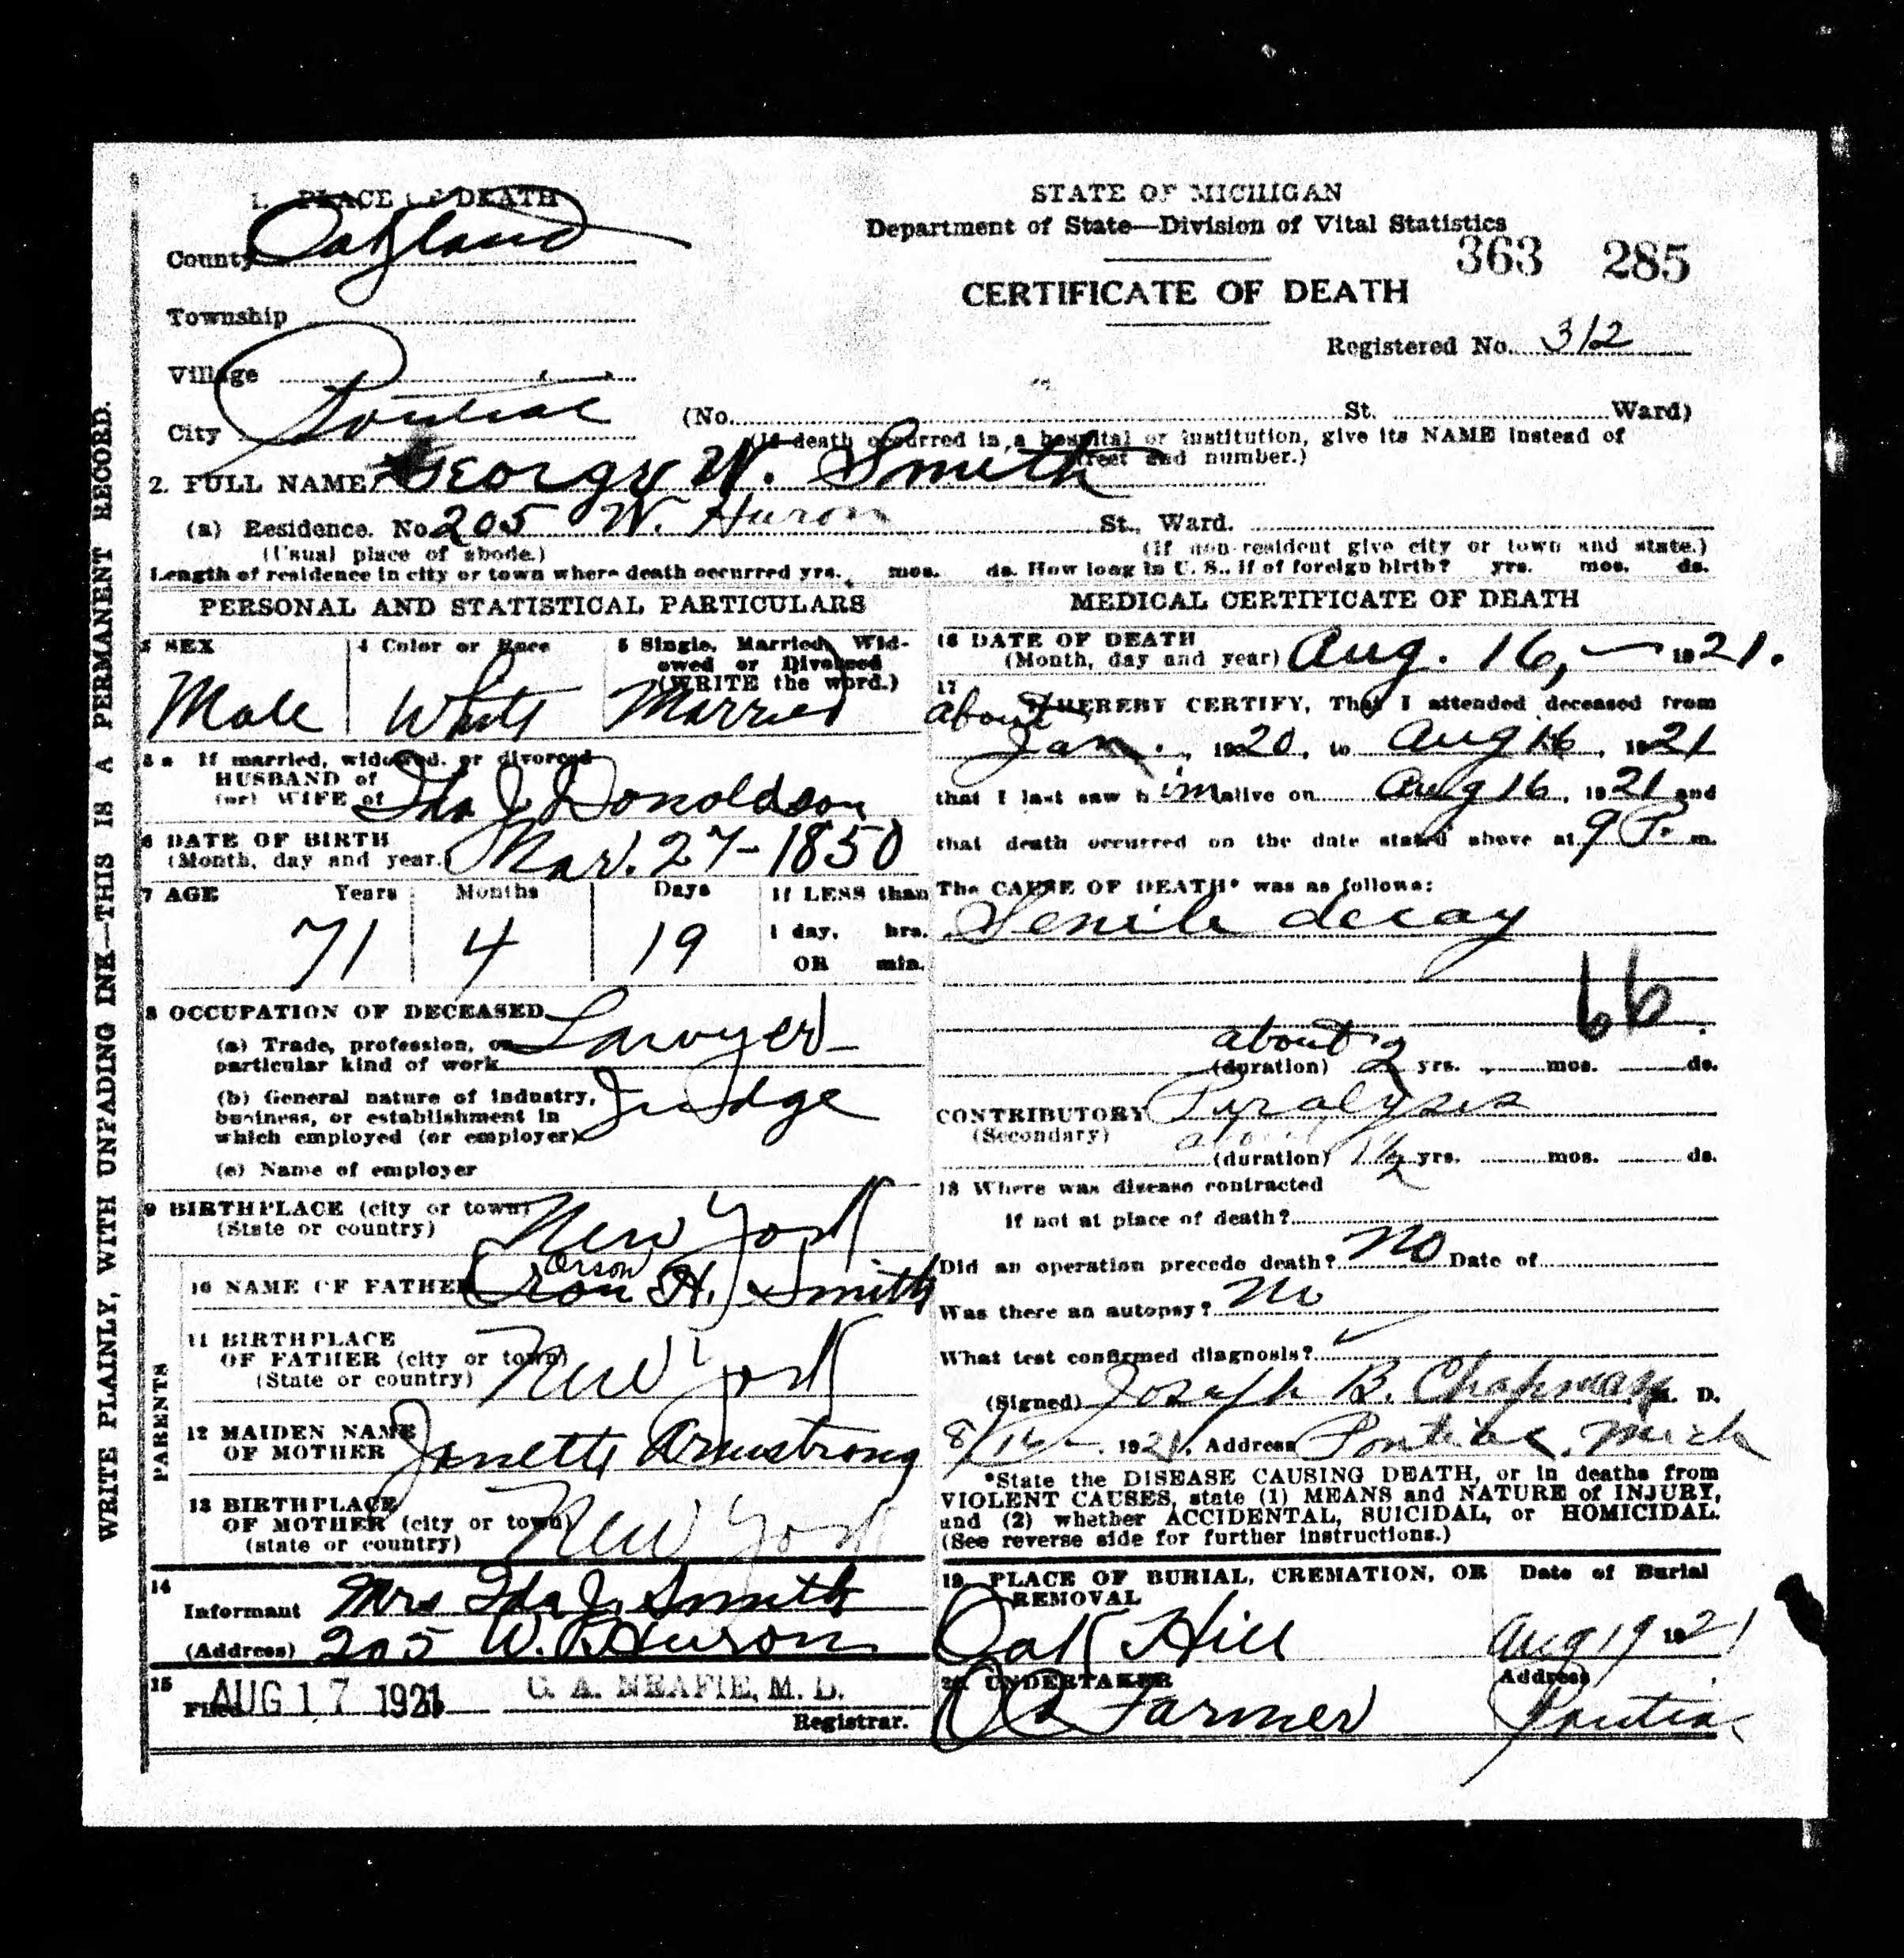 WRITE PLAINLY, WITH UNFADING INK—THIS IS A PERMANENT RECORD.
1. PLACE OF DEATH
County Oakland
Township
Village
City Pontiac
STATE OF MICHIGAN
Department of State—Division of Vital Statistics
363 285
CERTIFICATE OF DEATH
Registered No. 312
(No. St. Ward)
(If death occurred in a hospital or institution, give its NAME instead of
street and number.)
2. FULL NAME George W. Smith
(a) Residence. No. 205 W. Huron St., Ward.
(Usual place of abode.) (If non-resident give city or town and state.)
Length of residence in city or town where death occurred yrs. mos. ds. How long in U. S., if of foreign birth? yrs. mos. ds.
PERSONAL AND STATISTICAL PARTICULARS
3 SEX
Male
4 Color or Race
White
5 Single, Married, Wid-
owed or Divorced
(WRITE the word.)
Married
5 a If married, widowed, or divorced
HUSBAND of
(or) WIFE of Ida J Donoldson
6 DATE OF BIRTH
(Month, day and year.) Mar. 27-1850
7 AGE Years Months Days If LESS than
71 4 19 1 day, hrs.
OR min.
8 OCCUPATION OF DECEASED
(a) Trade, profession, or
particular kind of work Lawyer
(b) General nature of industry,
business, or establishment in
which employed (or employer) Judge
(c) Name of employer
9 BIRTHPLACE (city or town)
(State or country) New York
PARENTS
Orson
10 NAME OF FATHER Oron H. Smith
11 BIRTHPLACE
OF FATHER (city or town)
(State or country) New York
12 MAIDEN NAME
OF MOTHER Janette Armstrong
13 BIRTHPLACE
OF MOTHER (city or town)
(state or country) New York
14
Informant Mrs Ida J. Smith
(Address) 205 W. Huron
15
Filed AUG 17 1921 C. A. NEAFIE, M. D.
Registrar.
MEDICAL CERTIFICATE OF DEATH
16 DATE OF DEATH
(Month, day and year) Aug. 16, 1921.
17
I HEREBY CERTIFY, That I attended deceased from
about Jan., 1920, to Aug 16, 1921
that I last saw him alive on Aug 16, 1921 and
that death occurred on the date stated above at 9 P. m.
The CAUSE OF DEATH* was as follows:
Senile decay
66
about
(duration) 2 yrs. mos. ds.
CONTRIBUTORY Paralysis
(Secondary) about
(duration) 1½ yrs. mos. ds.
18 Where was disease contracted
if not at place of death?
Did an operation precede death? No Date of
Was there an autopsy? No
What test confirmed diagnosis?
(Signed) Joseph B. Chapman M. D.
1921, Address Pontiac, Mich
*State the DISEASE CAUSING DEATH, or in deaths from
VIOLENT CAUSES, state (1) MEANS and NATURE of INJURY,
and (2) whether ACCIDENTAL, SUICIDAL, or HOMICIDAL.
(See reverse side for further instructions.)
19 PLACE OF BURIAL, CREMATION, OR
REMOVAL
Oak Hill
Date of Burial
Aug 19 1921
20 UNDERTAKER
Farmer
Address
Pontiac